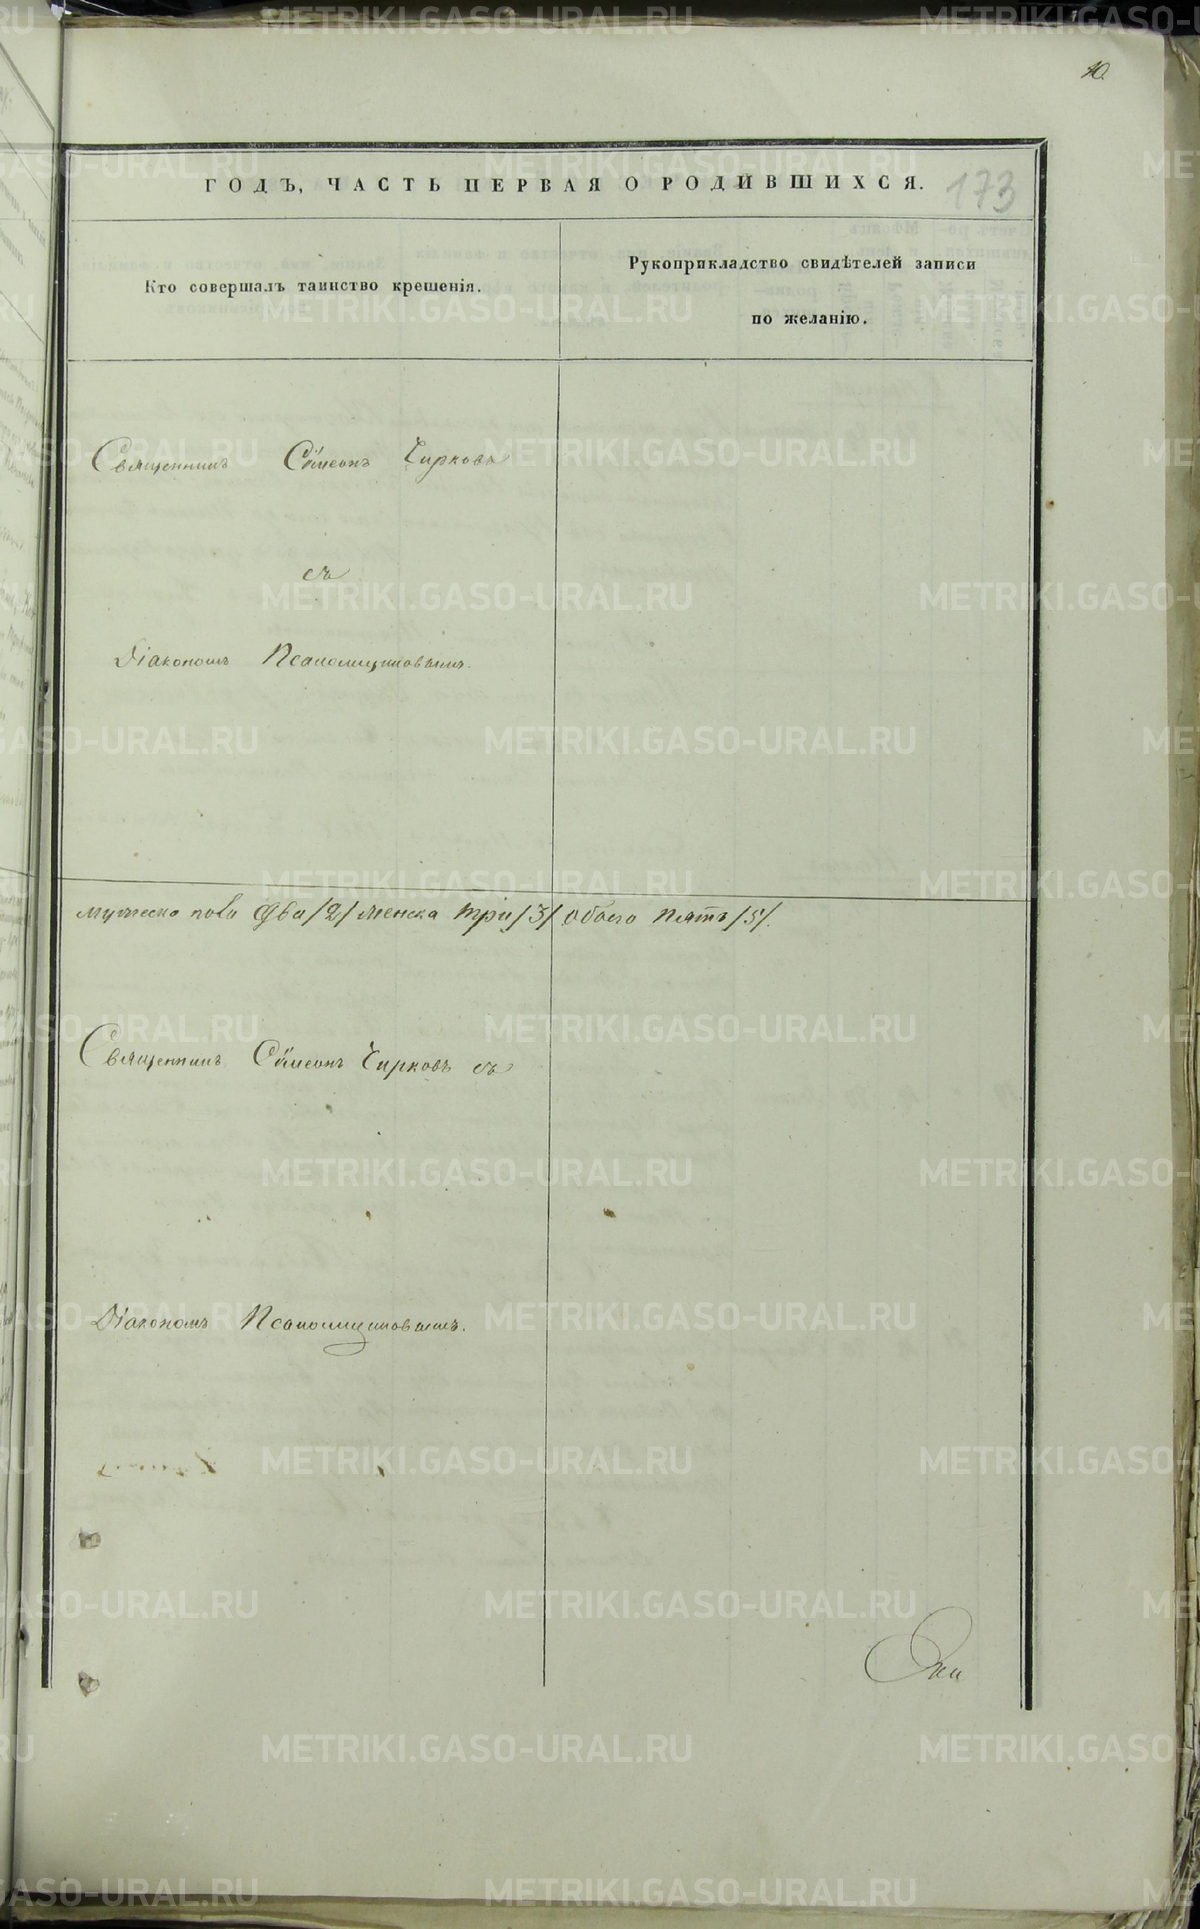 10.
ГОДЪ, ЧАСТЬ ПЕРВАЯ О РОДИВШИХСЯ.
173
Кто совершалъ таинство крещенія.
Рукоприкладство свидѣтелей записи
по желанію.
Священникъ Симеонъ Чирковъ
съ
Діакономъ
мужеска пола два /2/ женска три /3/ обоего пять /5/.
Священникъ Симеонъ Чирковъ съ
Діакономъ
METRIKI.GASO-URAL.RU